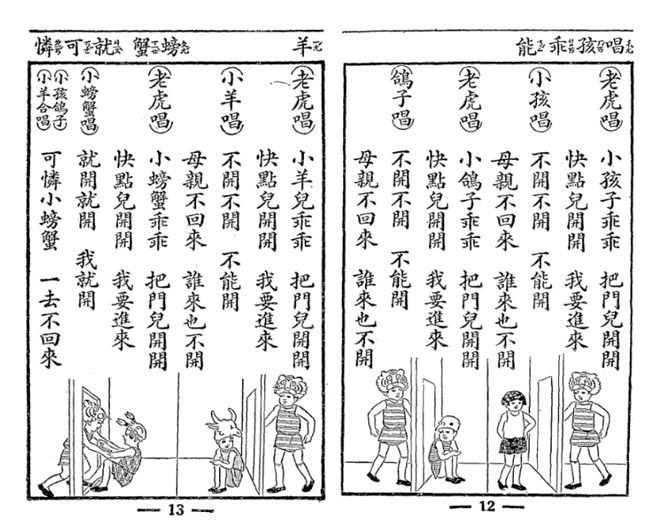 唱孩乖能
(老虎唱) 小孩子乖乖 把門兒開開
快點兒開開 我要進來
(小孩唱) 不開不開 不能開
母親不回來 誰來也不開
(老虎唱) 小鴿子乖乖 把門兒開開
快點兒開開 我要進來
(鴿子唱) 不開不開 不能開
母親不回來 誰來也不開
12
羊螃蟹就可憐
(老虎唱) 小羊兒乖乖 把門兒開開
快點兒開開 我要進來
(小羊唱) 不開不開 不能開
母親不回來 誰來也不開
(老虎唱) 小螃蟹乖乖 把門兒開開
快點兒開開 我要進來
(小螃蟹唱) 就開就開 我就開
(小孩鴿子小羊合唱) 可憐小螃蟹 一去不回來
13